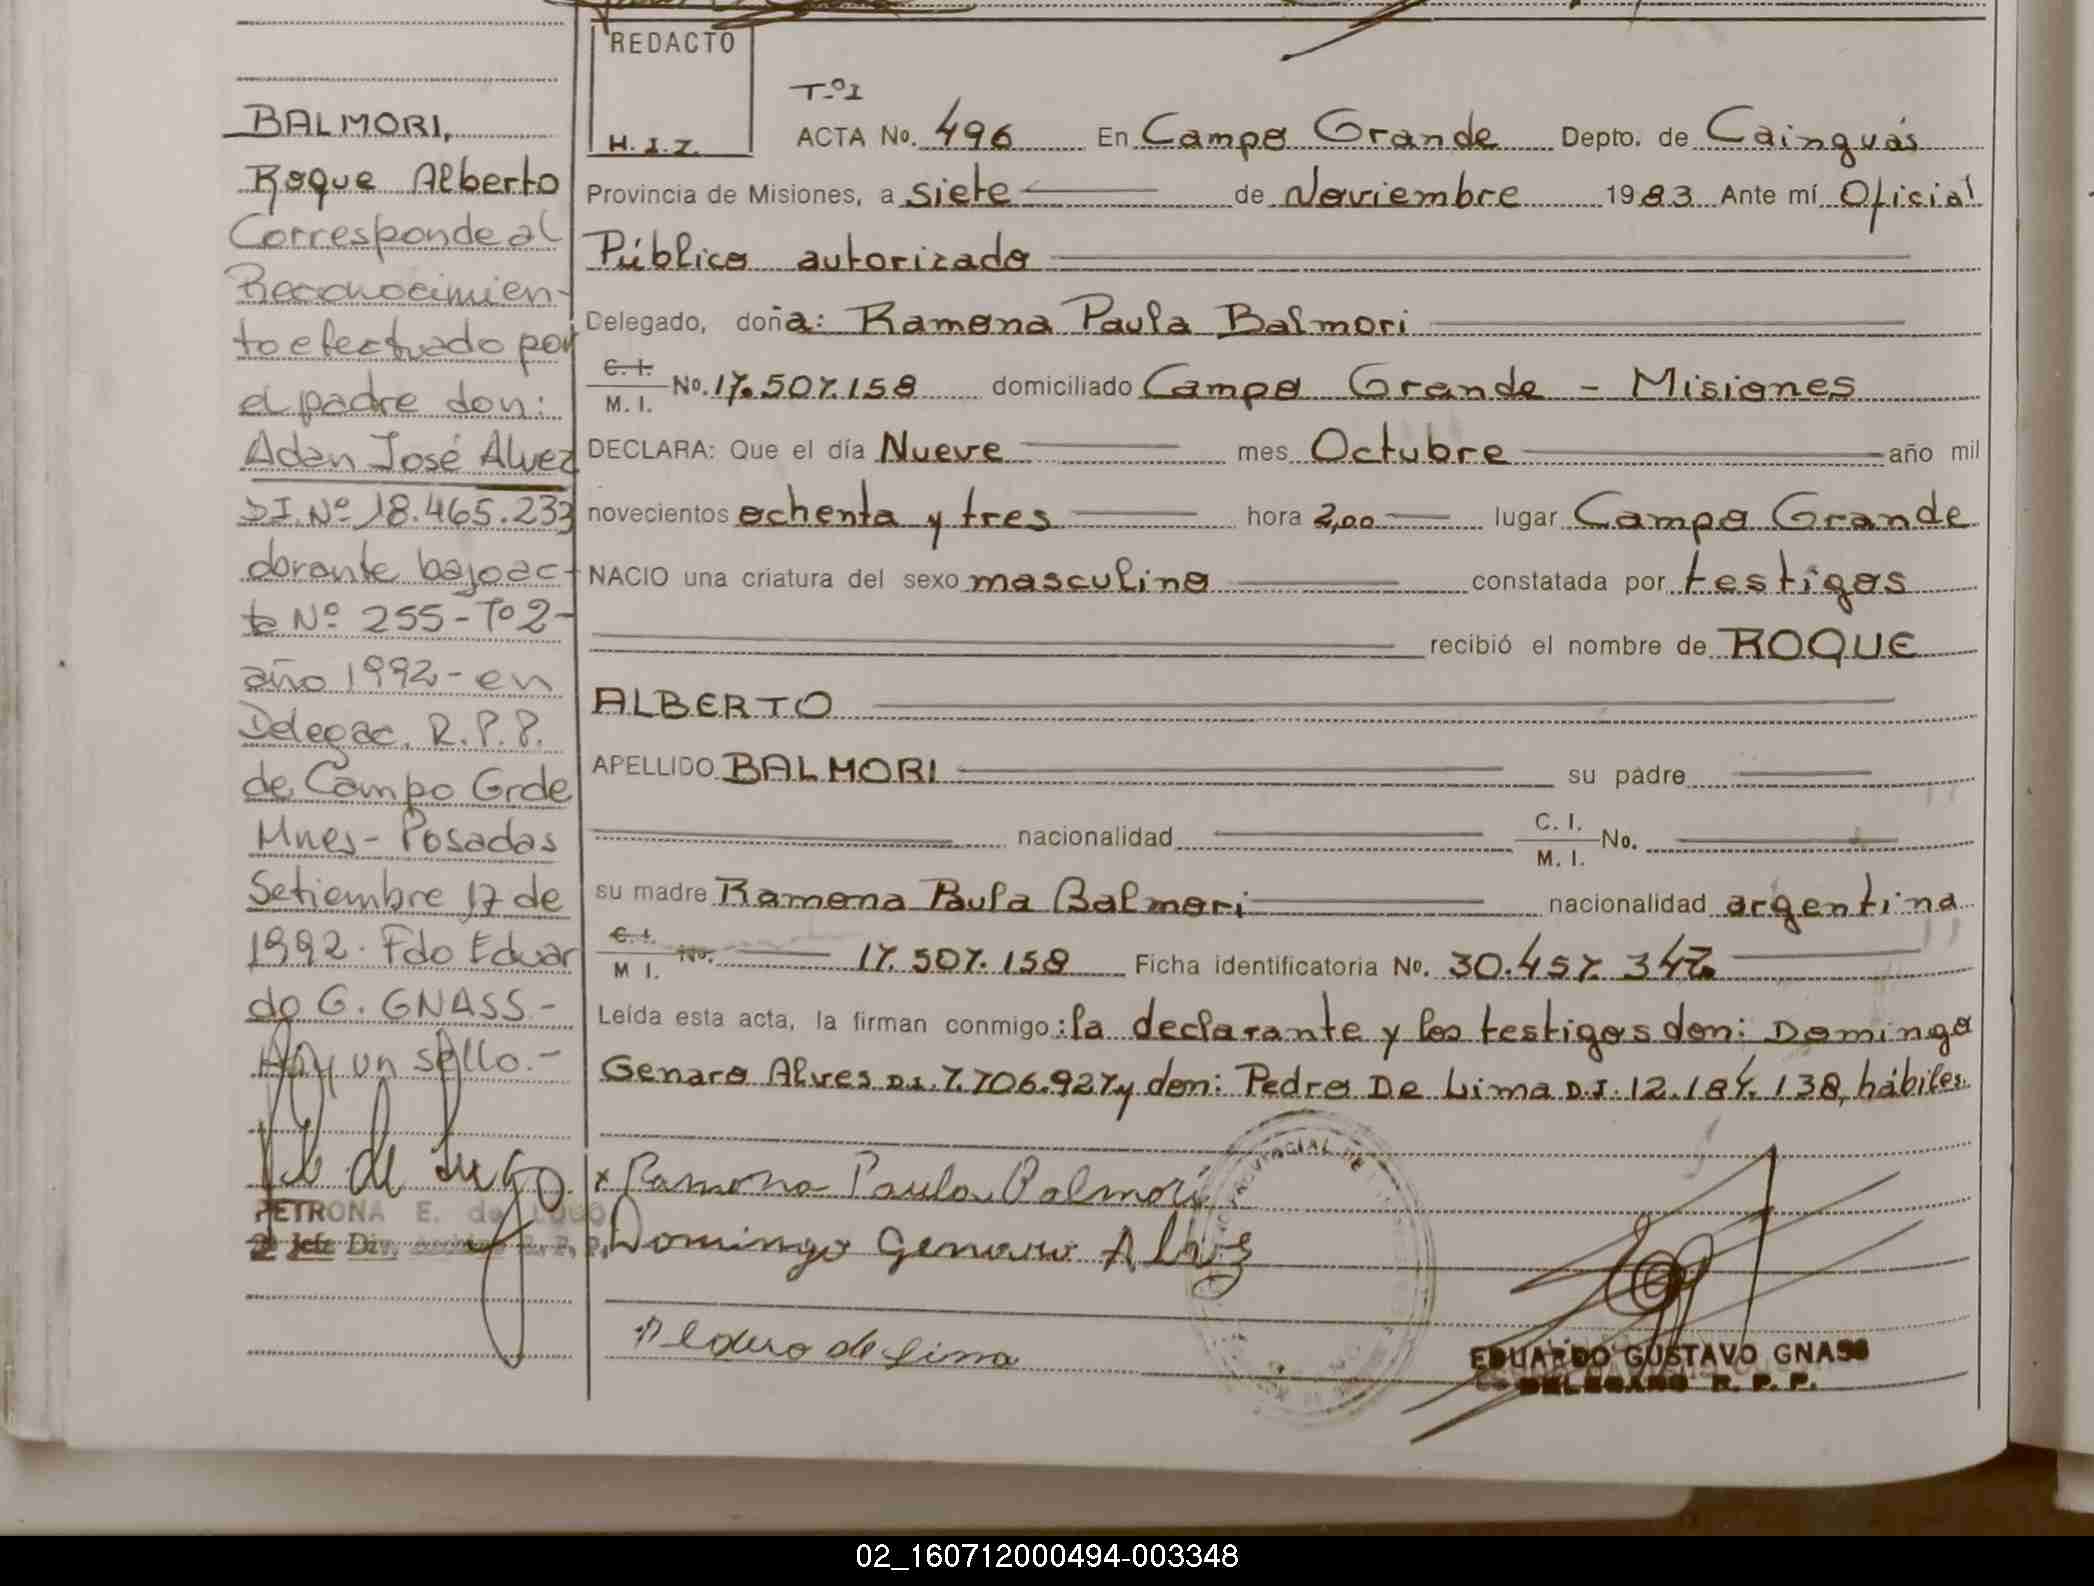 REDACTO
H. I. Z.
Tº I
ACTA No. 496 En Campo Grande Depto. de Cainguás
Provincia de Misiones, a siete de Noviembre 1983 Ante mí Oficial
Público autorizado
Delegado, doña: Ramona Paula Balmori
C. I.
M. I. No. 17.507.158 domiciliado Campo Grande - Misiones
DECLARA: Que el día Nueve mes Octubre año mil
novecientos ochenta y tres hora 2,00 lugar Campo Grande
NACIO una criatura del sexo masculino constatada por testigos
recibió el nombre de ROQUE
ALBERTO
APELLIDO BALMORI su padre
nacionalidad C. I.
M. I. No.
su madre Ramona Paula Balmori nacionalidad argentina
C. I.
M I. No. 17.507.158 Ficha identificatoria No. 30.457.347
Leída esta acta, la firman conmigo: la declarante y los testigos don: Domingo
Genaro Alves D.I. 7.706.927 y don: Pedro De Lima D.I. 12.187.138, hábiles.
x Ramona Paula Balmori
Domingo Genaro Alves
Pedro de Lima
EDUARDO GUSTAVO GNASS
DELEGADO R. P. P.
BALMORI,
Roque Alberto
Corresponde al
Reconocimien-
to efectuado por
el padre don:
Adan José Alvez
DI. Nº 18.465.233
obrante bajo ac-
ta Nº 255-Tº2-
año 1992- en
Delegac. R.P.P.
de Campo Grde
Mnes- Posadas
Setiembre 17 de
1992. Fdo Eduar
do G. GNASS.-
Hay un sello.-
PETRONA E. de LUGO
2º Jefe Div. Archivo R. P. P.
02_160712000494-003348